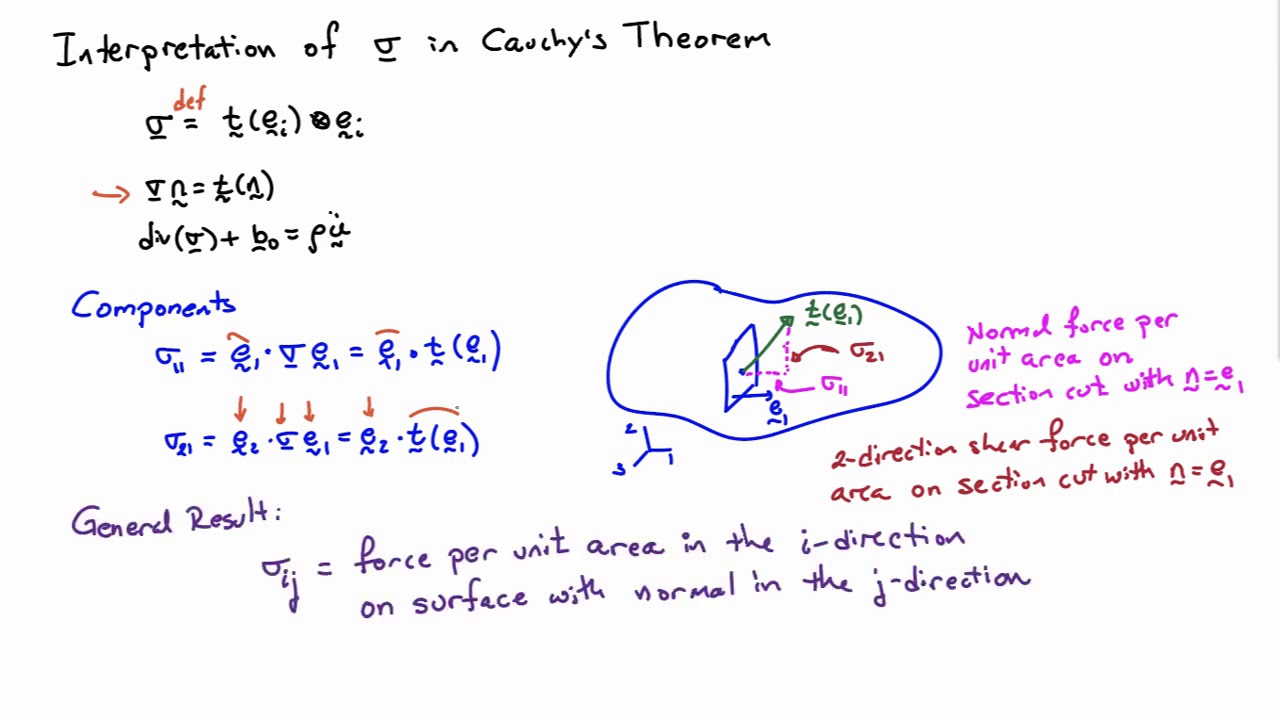 Interpretation of σ in Cauchy's Theorem
σ =def t(e_i) ⊗ e_i
→ σ n = t(n)
div(σ) + b_0 = ρü
Components
σ_11 = e_1 · σ e_1 = e_1 · t(e_1)
σ_21 = e_2 · σ e_1 = e_2 · t(e_1)
t(e_1)
σ_21
σ_11
e_1
2
1
3
Normal force per
unit area on
section cut with n = e_1
2-direction shear force per unit
area on section cut with n = e_1
General Result:
σ_ij = force per unit area in the i-direction
on surface with normal in the j-direction